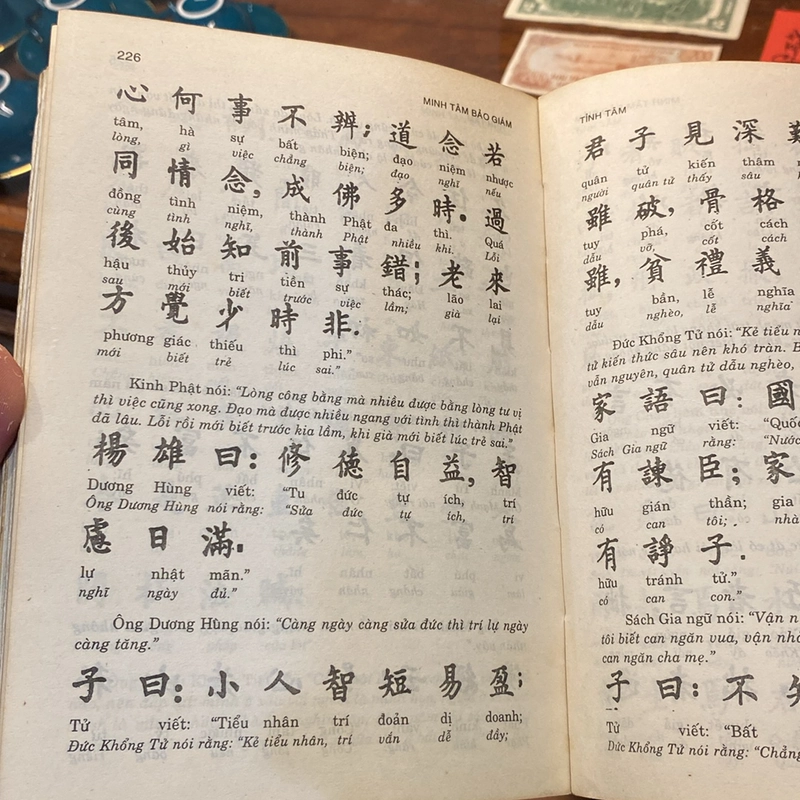 226
MINH TÂM BẢO GIÁM
心 何 事 不 辨; 道 念 若
tâm, hà sự bất biện; đạo niệm nhược
lòng, gì việc chẳng biện; đạo nghĩ nếu
同 情 念, 成 佛 多 時. 過
đồng tình niệm, thành Phật đa thì. Quá
cùng tình nghĩ, thành Phật nhiều khi. Lỗi
後 始 知 前 事 錯; 老 來
hậu thủy tri tiền sự thác; lão lai
sau mới biết trước việc lầm; già lại
方 覺 少 時 非.
phương giác thiếu thì phi."
mới biết trẻ lúc sai."
Kinh Phật nói: "Lòng công bằng mà nhiều được bằng lòng tư vị
thì việc cũng xong. Đạo mà được nhiều ngang với tình thì thành Phật
đã lâu. Lỗi rồi mới biết trước kia lầm, khi già mới biết lúc trẻ sai."
楊 雄 曰: 修 德 自 益, 智
Dương Hùng viết: "Tu đức tự ích, trí
Ông Dương Hùng nói rằng: "Sửa đức tự ích, trí
慮 日 滿.
lự nhật mãn."
nghĩ ngày đủ."
Ông Dương Hùng nói: "Càng ngày càng sửa đức thì trí lự ngày
càng tăng."
子 曰: 小 人 智 短 易 盈;
Tử viết: "Tiểu nhân trí đoản dị doanh;
Đức Khổng Tử nói rằng: "Kẻ tiểu nhân, trí vắn dễ đầy;
TỈNH TÂM
君 子 見 深 難
quân tử kiến thâm
người quân tử thấy sâu
雖 破, 骨 格
tuy phá, cốt cách
dẫu vỡ, cốt cách
雖, 貧 禮 義
tuy bần, lễ nghĩa
dẫu nghèo, lễ nghĩa
Đức Khổng Tử nói: "Kẻ tiểu
tử kiến thức sâu nên khó tràn.
vẫn nguyên, quân tử dẫu nghèo,
家 語 曰: 國
Gia ngữ viết: "Quốc
Sách Gia ngữ rằng: "Nước
有 諫 臣; 家
hữu gián thần; gia
có can tôi; nhà
有 諍 子.
hữu tránh tử."
có can con."
Sách Gia ngữ nói: "Vận
tôi biết can ngăn vua, vận
can ngăn cha mẹ."
子 曰: 不
Tử viết: "Bất
Đức Khổng Tử nói rằng: "Chẳng